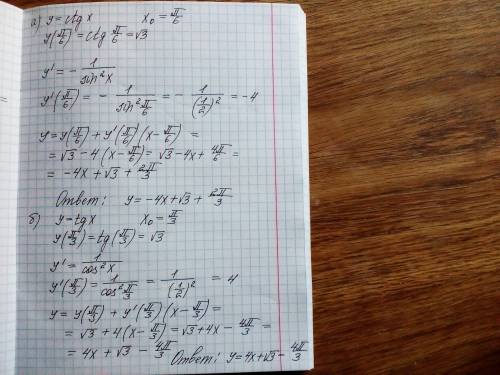 а) y = ctg x    x₀ = π/6
y(π/6) = ctg π/6 = √3
y' = - 1/sin²x
y'(π/6) = - 1/sin² π/6 = - 1/(1/2)² = -4
y = y(π/6) + y'(π/6)(x - π/6) =
= √3 - 4(x - π/6) = √3 - 4x + 4π/6 =
= -4x + √3 + 2π/3
Ответ: y = -4x + √3 + 2π/3
б) y = tg x    x₀ = π/3
y(π/3) = tg(π/3) = √3
y' = 1/cos²x
y'(π/3) = 1/cos² π/3 = 1/(1/2)² = 4
y = y(π/3) + y'(π/3)(x - π/3) =
= √3 + 4(x - π/3) = √3 + 4x - 4π/3 =
= 4x + √3 - 4π/3 Ответ: y = 4x + √3 - 4π/3